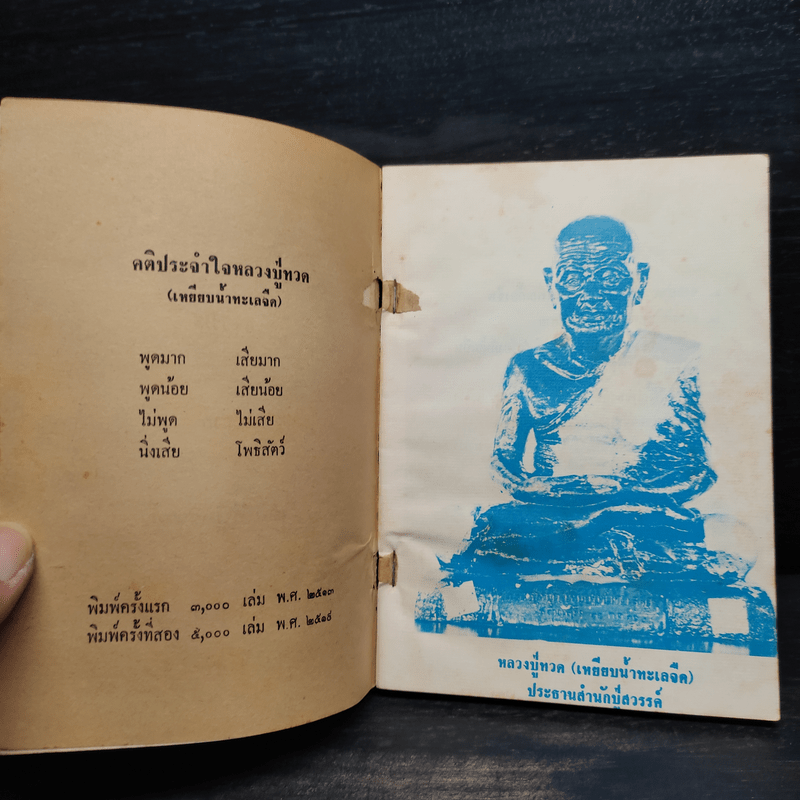 คติประจำใจหลวงปู่ทวด
(เหยียบน้ำทะเลจืด)
พูดมาก เสียมาก
พูดน้อย เสียน้อย
ไม่พูด ไม่เสีย
นิ่งเสีย โพธิสัตว์
พิมพ์ครั้งแรก ๓,๐๐๐ เล่ม พ.ศ. ๒๕๑๓
พิมพ์ครั้งที่สอง ๕,๐๐๐ เล่ม พ.ศ. ๒๕๑๕
หลวงปู่ทวด (เหยียบน้ำทะเลจืด)
ประธานสำนักปู่สวรรค์